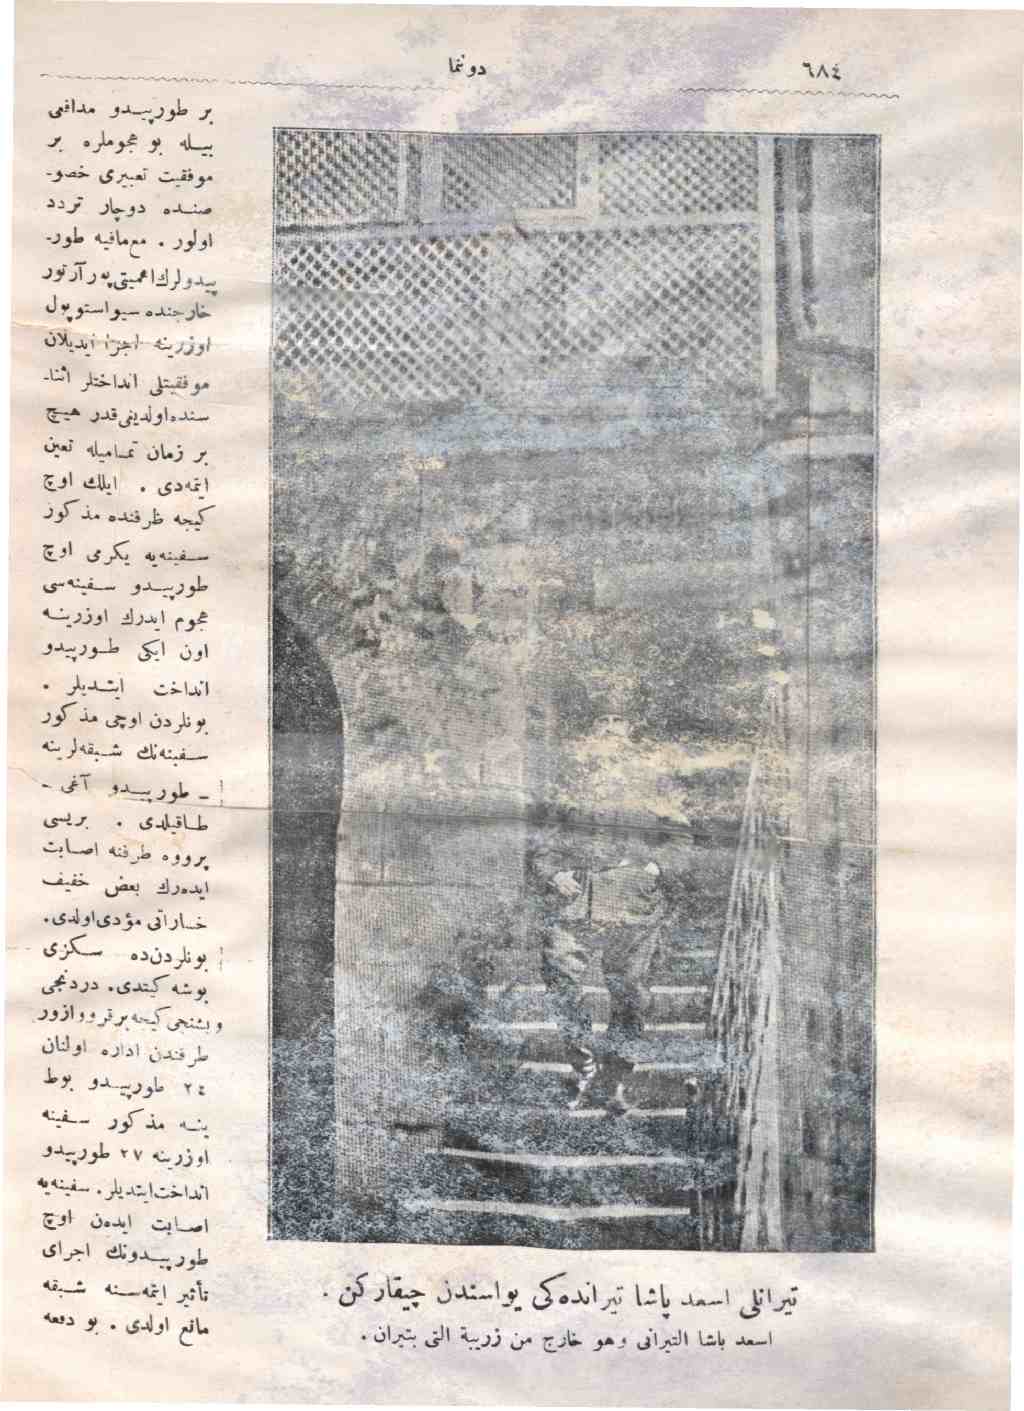 ٦٨٤
دوننما
بر طورپيدو مدافعى
بيله بو هجوملره بر
موفقيت تعبيرى خصو-
صنده دوچار تردد
اولور . مع‌مافيه طور-
پيدولرك اهميتى پور آرتور
خارجنده سيواستوپول
اوزرينه اجرا ايديلان
موفقيتلى انداختلر اثنا-
سنده اولديغى قدر هيچ
بر زمان تماميله تعين
ايتمه‌دى . ايلك اوچ
كيجه ظرفنده مذكور
سفينه‌يه يكرمى اوچ
طورپيدو سفينه‌سى
هجوم ايدرك اوزرينه
اون ايكى طورپيدو
انداخت ايتديلر .
بونلردن اوچى مذكور
سفينه‌نك شبقه‌لرينه
ـ طورپيدو آغى ـ
طاقيلدى . بريسى
پرووه طرفنه اصابت
ايده‌رك بعض خفيف
خساراتى مؤدى اولدى.
بونلردن‌ده سكزى
بوشه كيتدى. دردنجى
وبشنجى كيجه بر قرووازور
طرفندن اداره اولنان
٢٤ طورپيدو بوط
ينه مذكور سفينه
اوزرينه ٢٧ طورپيدو
انداخت ايتديلر. سفينه‌يه
اصابت ايدن اوچ
طورپيدونك اجراى
تأثير ايتمه‌سنه شبقه
مانع اولدى . بو دفعه
تيرانلى اسعد پاشا تيرانده‌كى يواسندن چيقاركن .
اسعد باشا التيرانى وهو خارج من زريبة التى بتيران .